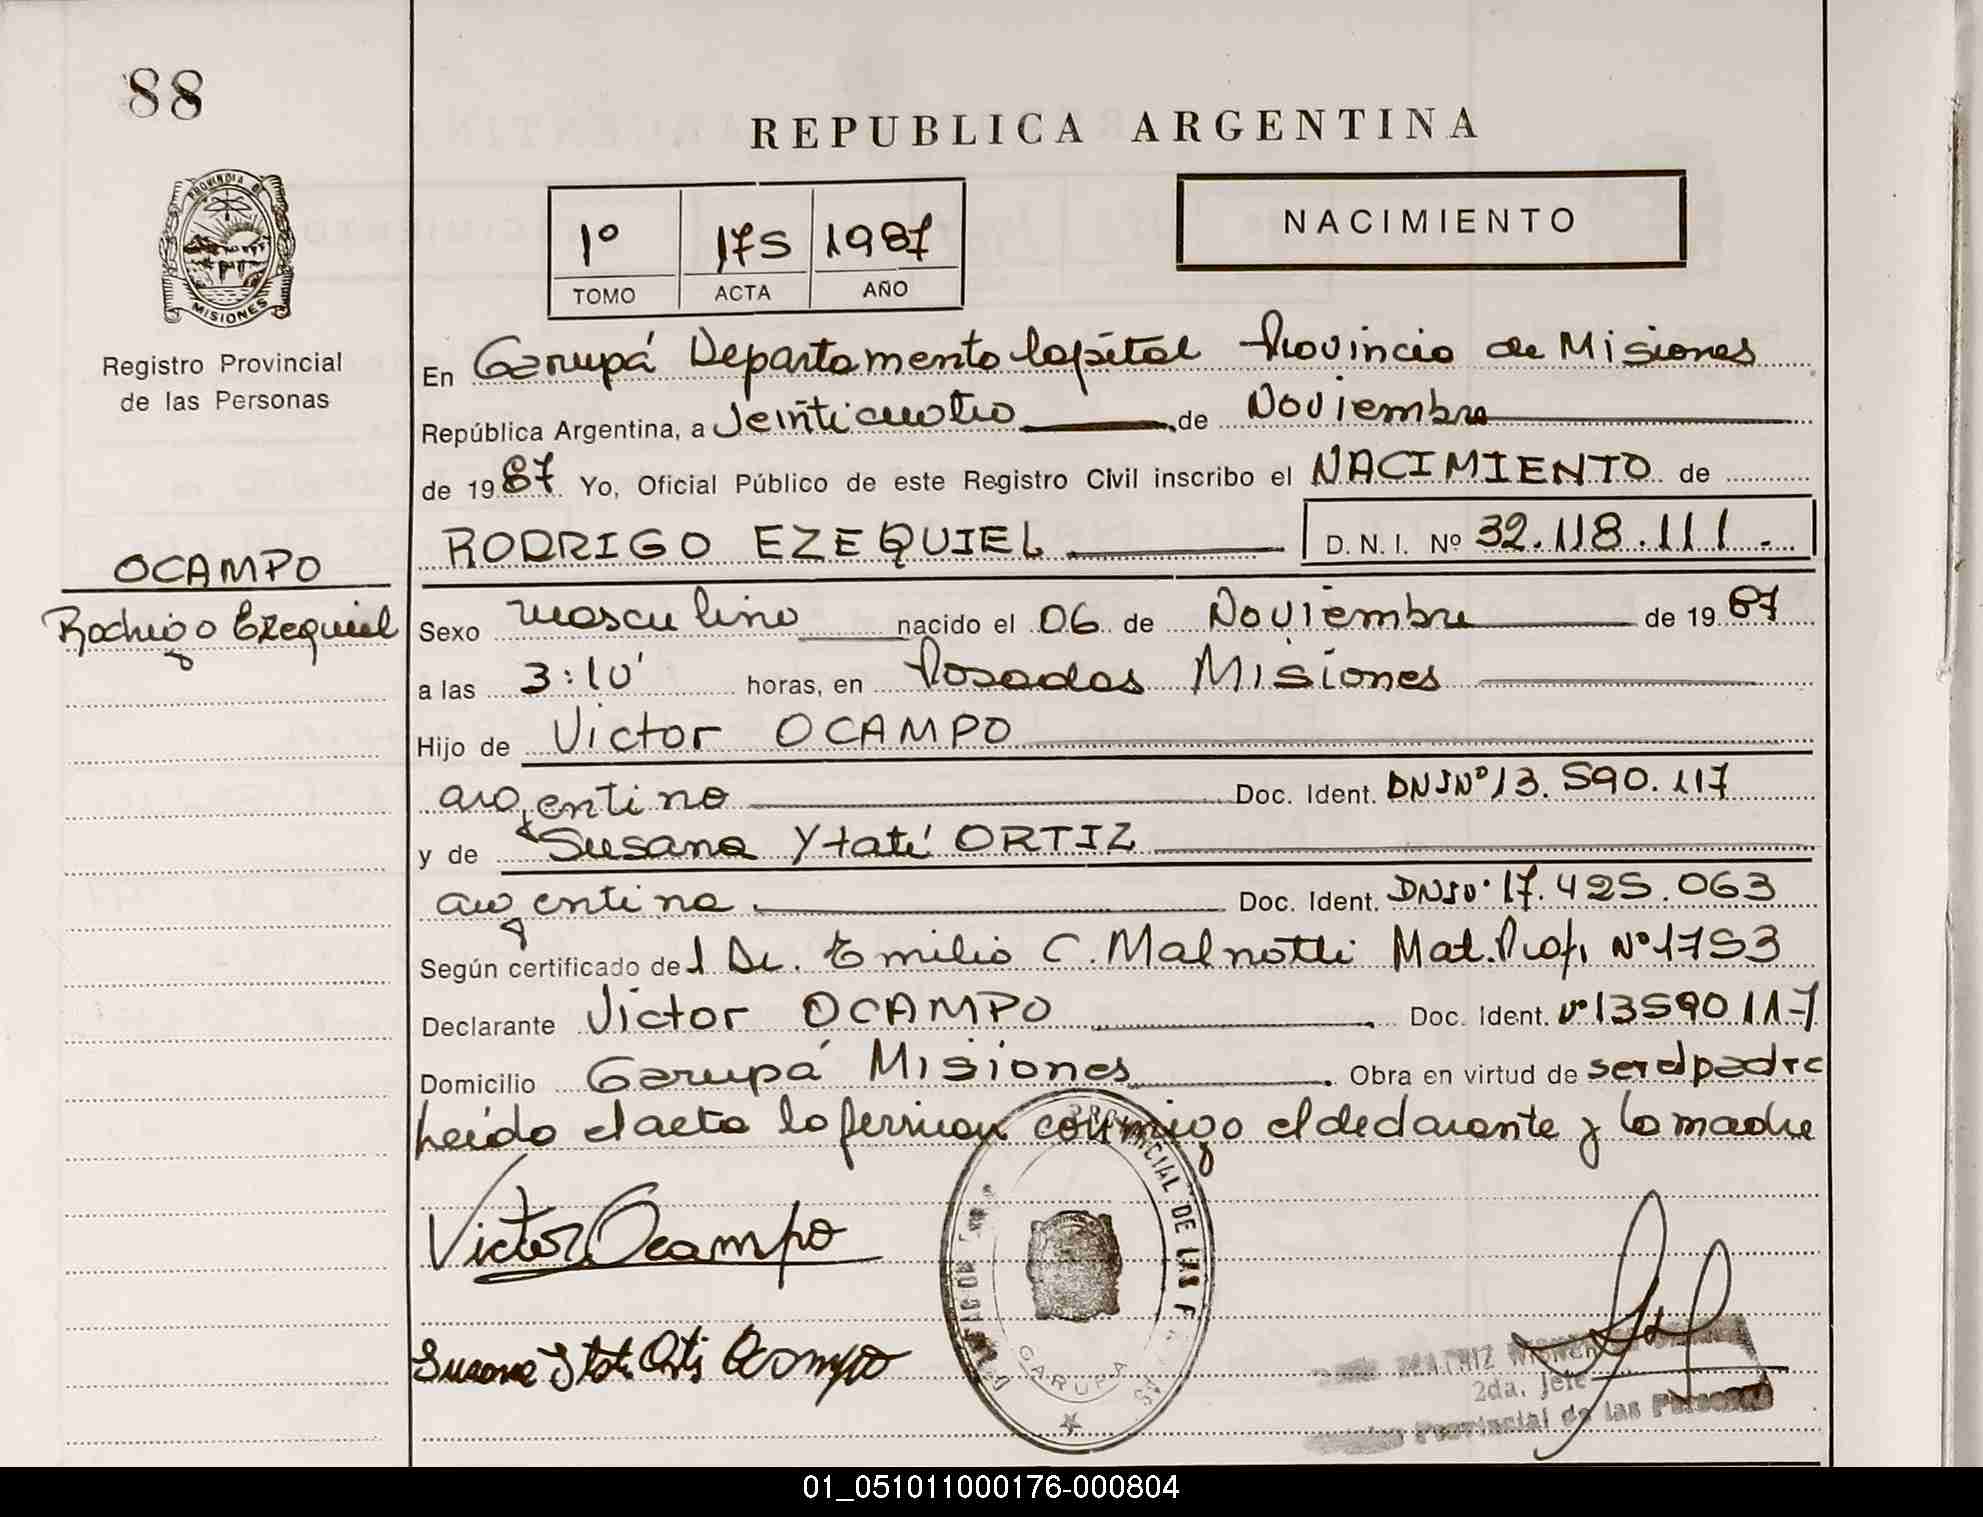 88
REPUBLICA ARGENTINA
PROVINCIA DE MISIONES
1º 175 1987
TOMO ACTA AÑO
NACIMIENTO
Registro Provincial
de las Personas
En Garupá Departamento Capital Provincia de Misiones
República Argentina, a Veinticuatro de Noviembre
de 1987 Yo, Oficial Público de este Registro Civil inscribo el NACIMIENTO de
RODRIGO EZEQUIEL D. N. I. Nº 32.118.111.-
OCAMPO
Rodrigo Ezequiel
Sexo masculino nacido el 06 de Noviembre de 1987
a las 3:10' horas, en Posadas Misiones
Hijo de Victor OCAMPO
argentino Doc. Ident. DNINº 13.590.117
y de Susana Ytatí ORTIZ
argentina Doc. Ident. DNINº 17.425.063
Según certificado del Dr. Emilio C. Malnatti Mat. Prof. Nº 1753
Declarante Victor OCAMPO Doc. Ident. Nº 13590117
Domicilio Garupá Misiones Obra en virtud de ser el padre
Leído el acta la firman conmigo el declarante y la madre
Victor Ocampo
PROVINCIAL DE LAS
GARUPA
Susana Ocampo
2da. Jefe
Provincial de las Personas
01_051011000176-000804